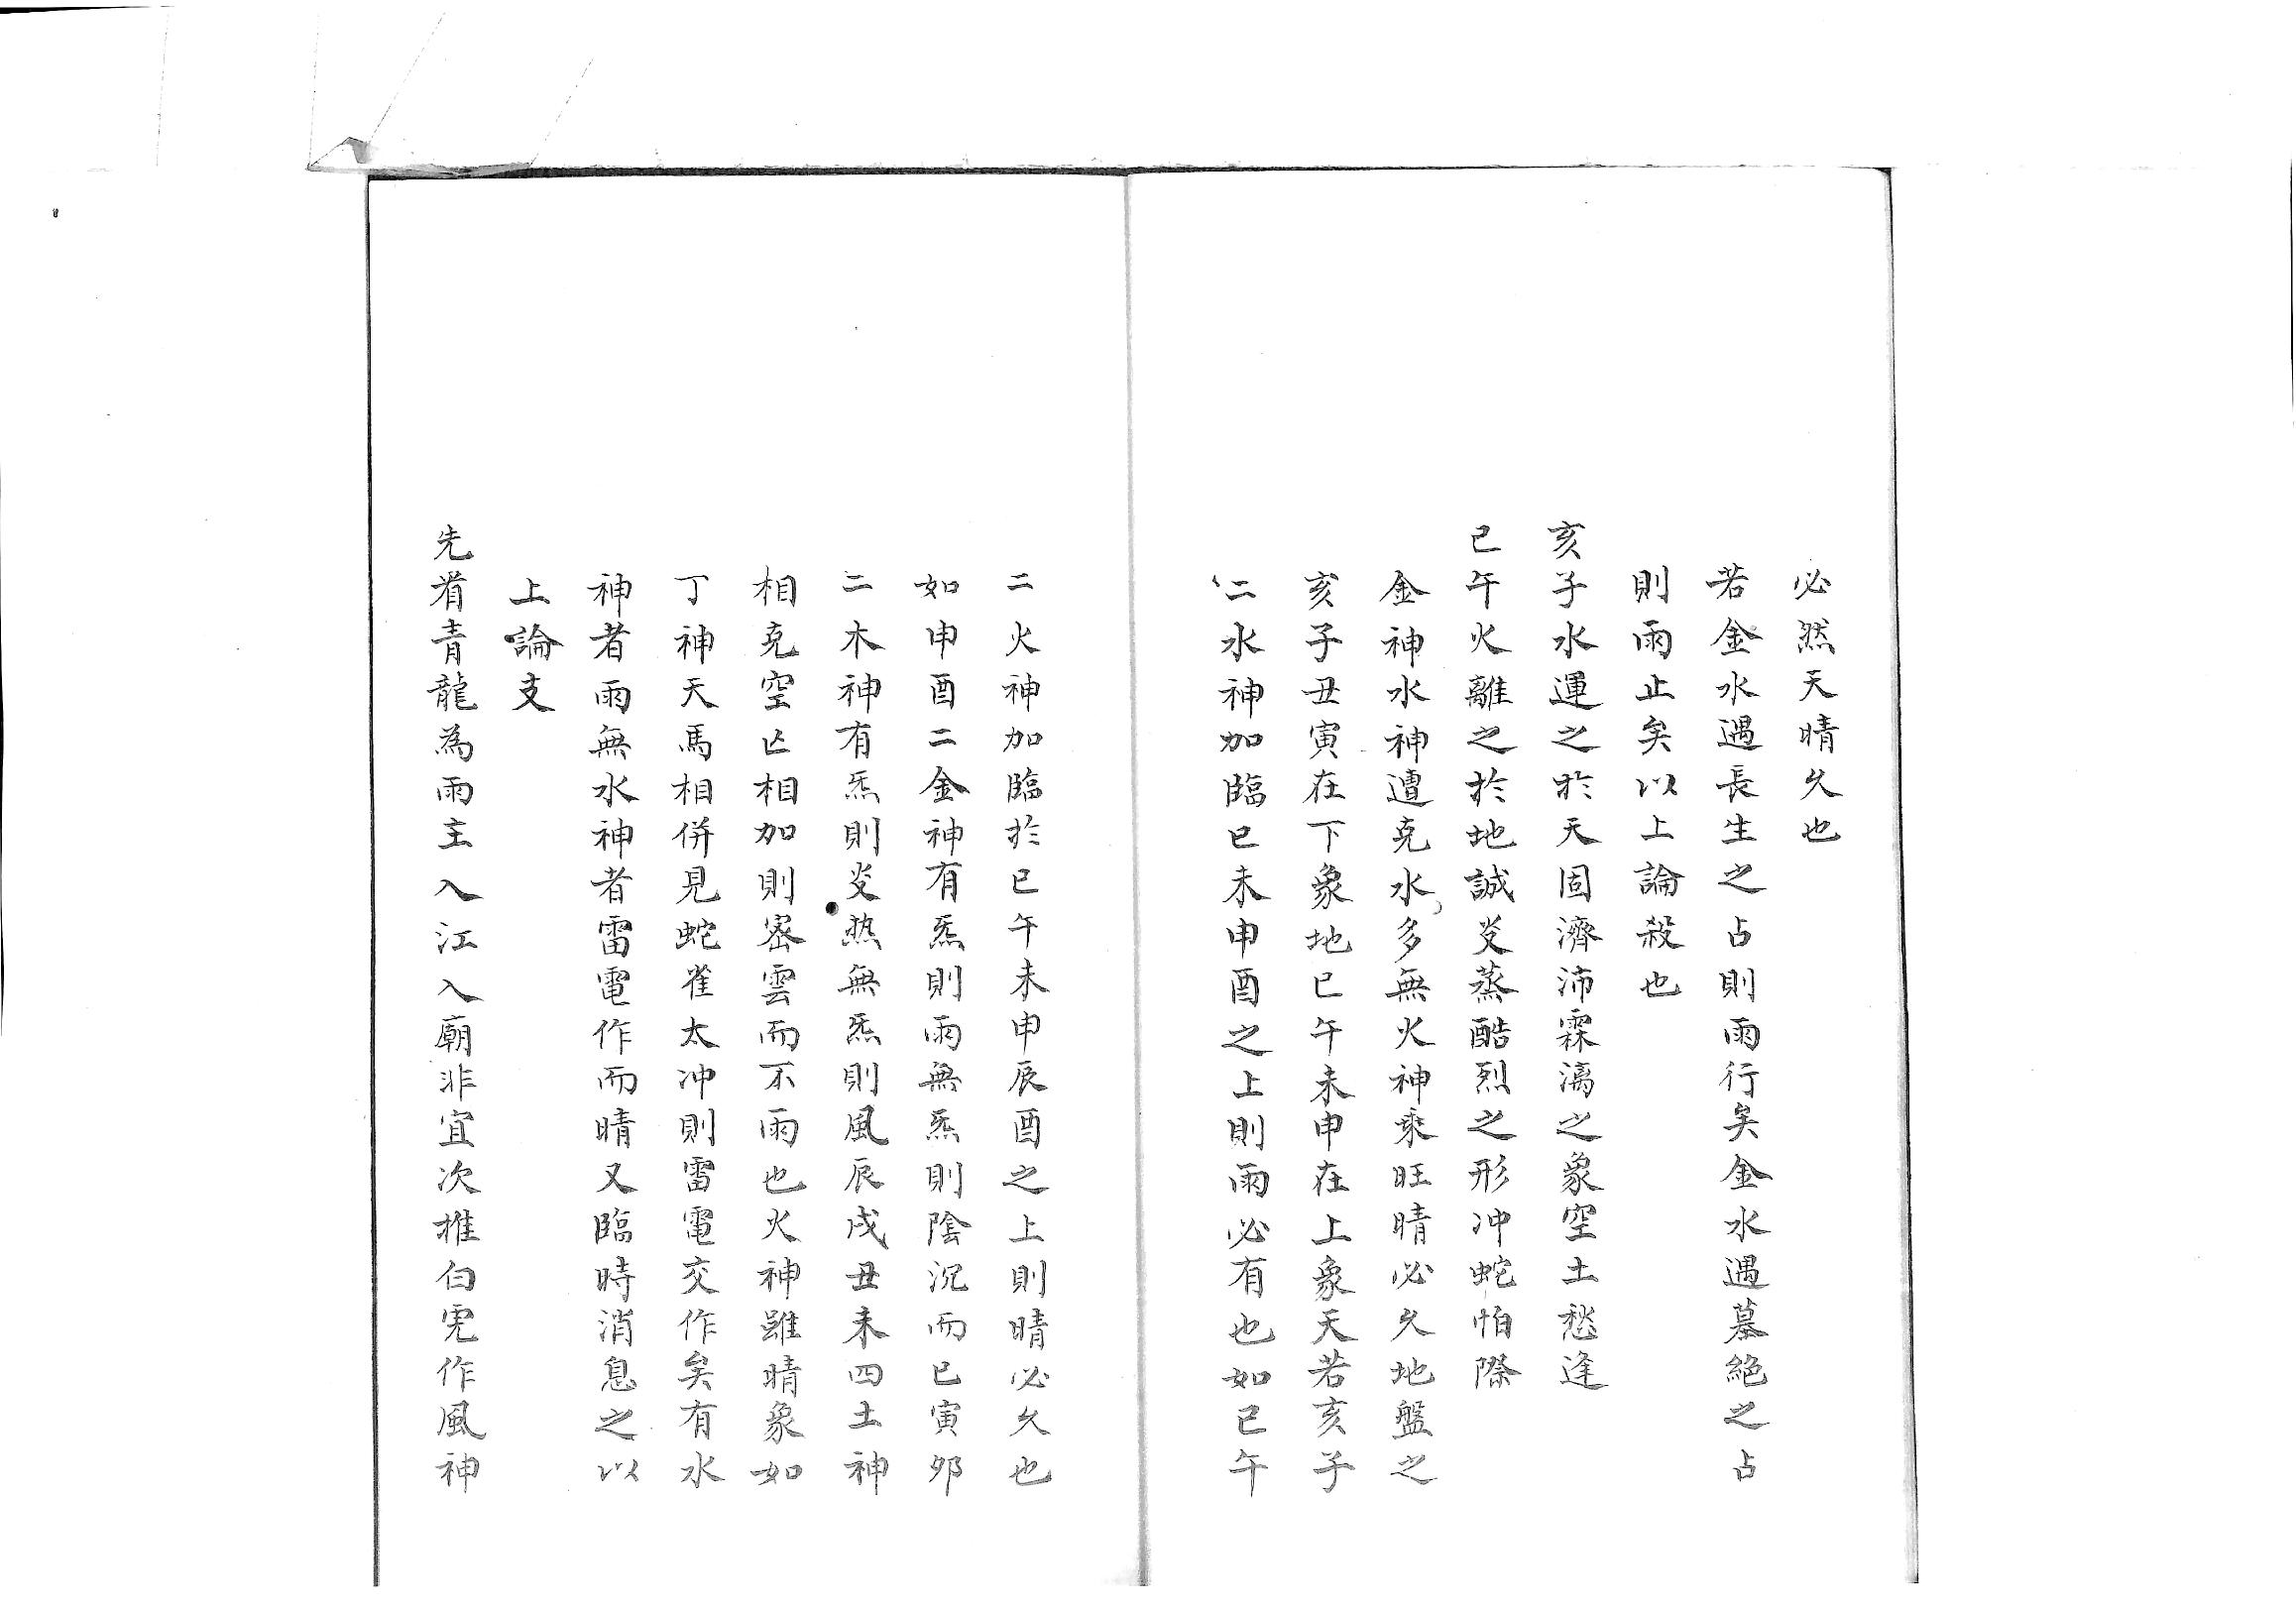 必然天晴久也
若金水遇長生之占則雨行矣金水遇墓絕之占
則雨止矣以上論殺也
亥子水運之於天固濟沛霖漓之象空土愁逢
巳午火離之於地誠炎蒸酷烈之形冲蛇怕際
金神水神遭克水多無火神乘旺晴必久地盤之
亥子丑寅在下象地巳午未申在上象天若亥子
二水神加臨巳未申酉之上則雨必有也如巳午
二火神加臨於巳午未申辰酉之上則晴必久也
如申酉二金神有炁則雨無炁則陰沉而已寅夘
二木神有炁則炎热無炁則風辰戌丑未四土神
相克空亡相加則密雲而不雨也火神雖晴象如
丁神天馬相併見蛇雀太冲則雷電交作矣有水
神者雨無水神者雷電作而晴又臨時消息之以
上論支
先看青龍為雨主入江入廟非宜次推白虎作風神